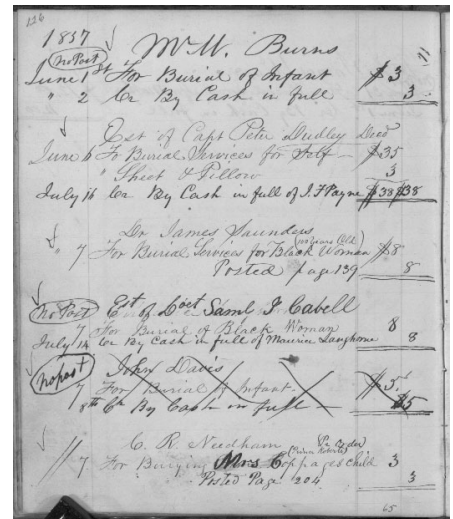 126
1857 Mr M. Burns 71
No Post
June 1st For Burial of Infant $3
" 2 Cr By Cash in full 3
Est of Capt Peter Dudley Decd
June 6 To Burial Services for Self — $35
" Sheet & Pillow 3
July 16 Cr By Cash in full of J. F Payne $38 $38
Dr James Saunders
(110 Years Old)
" 7 For Burial Services for Black Woman $8
Posted page 139 8
No Post Est of Doct Saml J Cabell
7 For Burial of Black Woman 8
July 14 Cr By Cash in full of Maurice Langhorne 8
No post John Davis
7 For Burial of Infant $5
8th Cr By Cash in full — $5
C. R. Needham Pr Order
" 7 For Burying Mrs Coppages Child 3
Posted Page 204 3
65